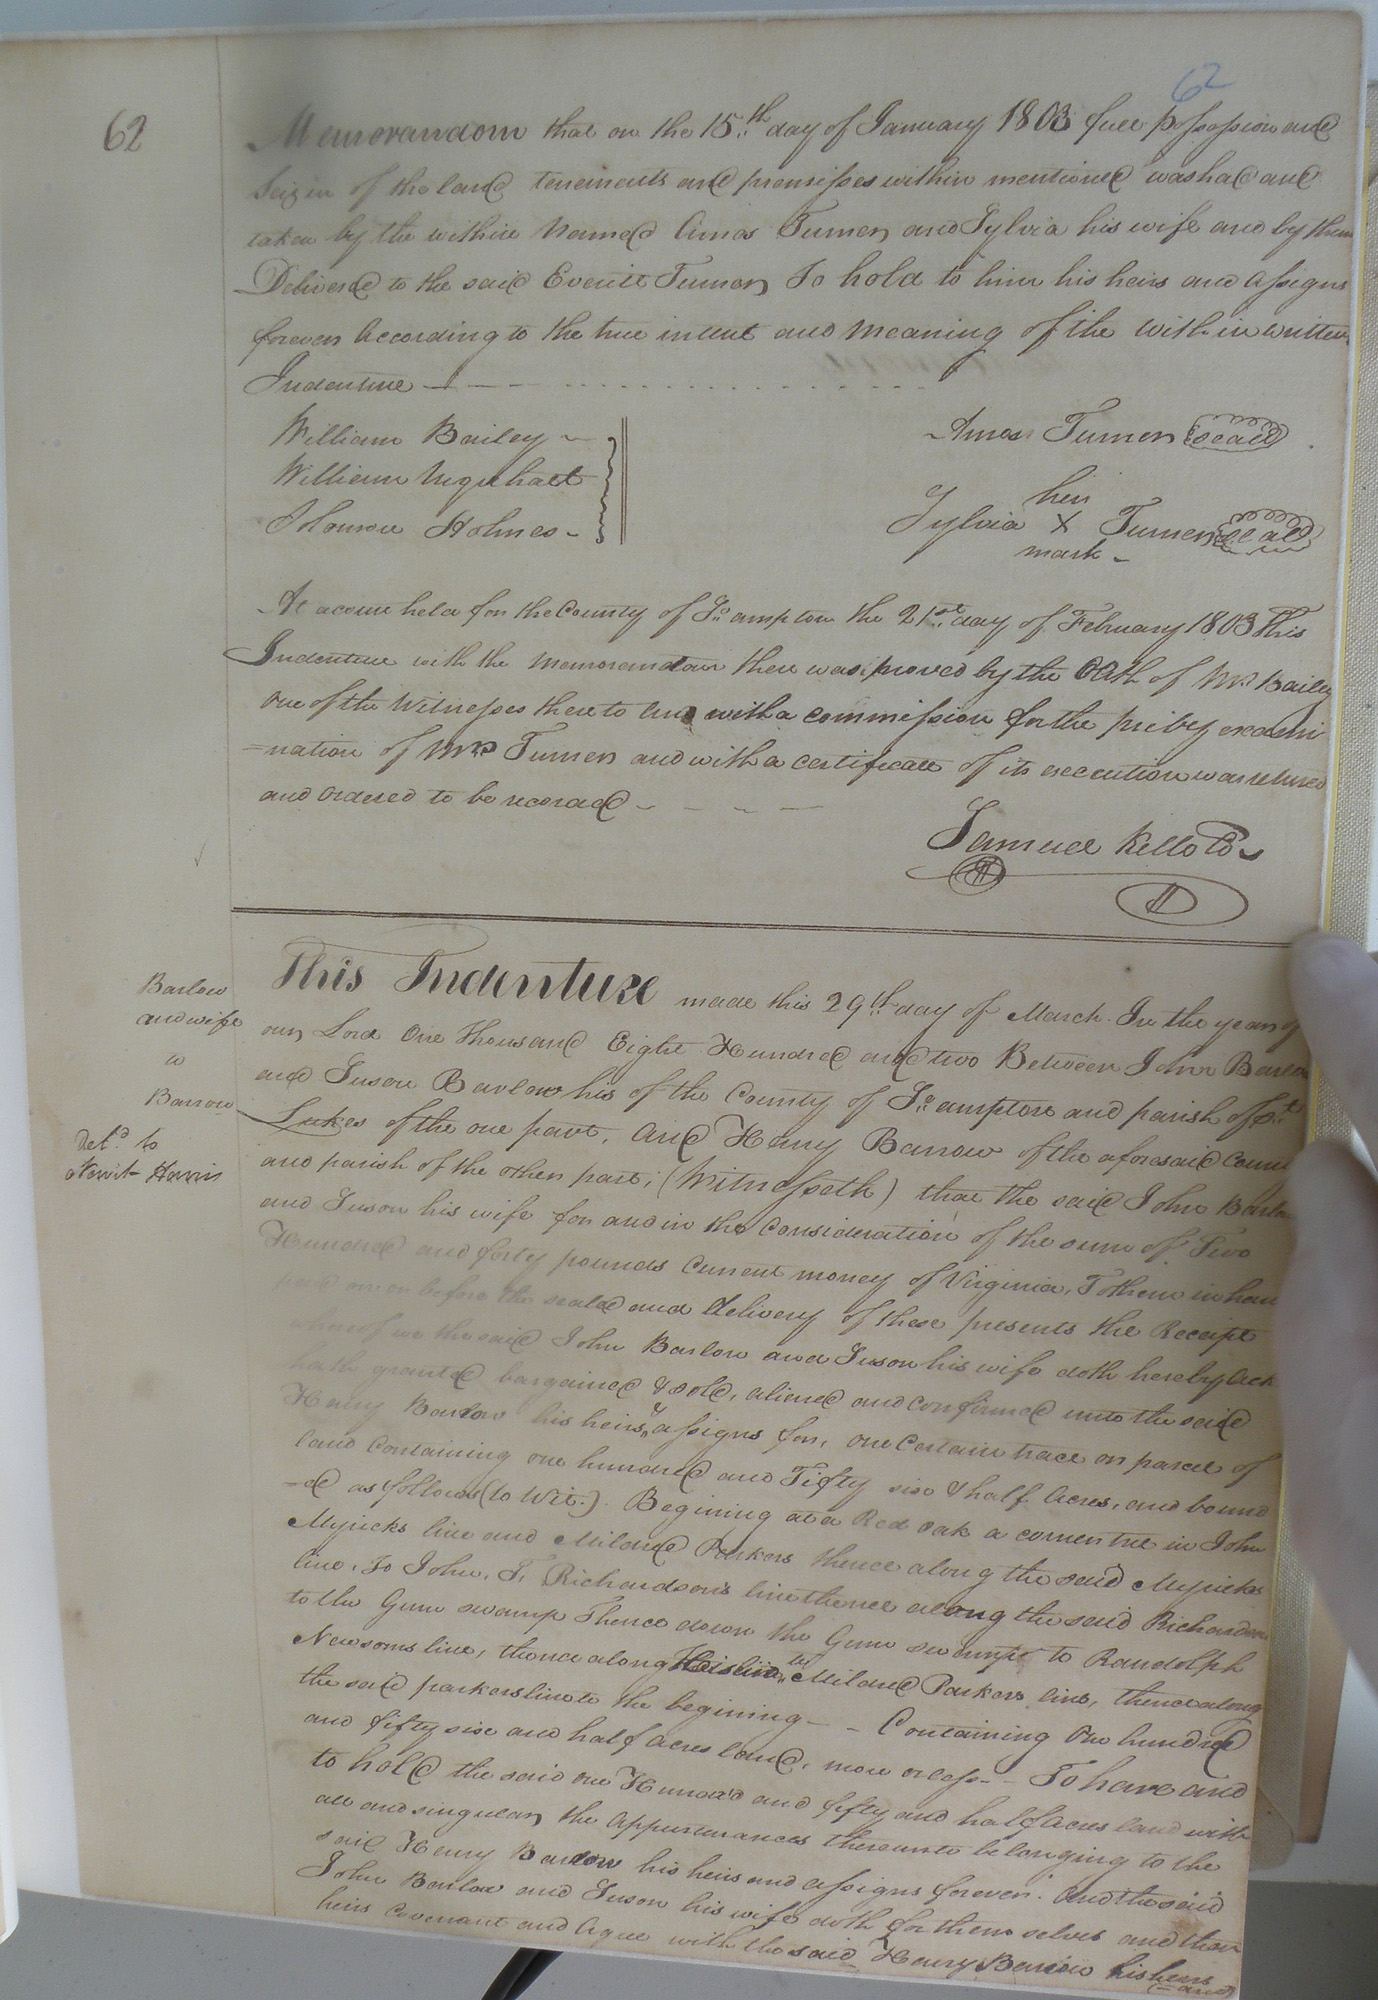 62
62
Memorandom that on the 15th day of January 1803 full possession and
Seizin of the land tenements and premisses within mentioned was had and
taken by the within Named Amos Turner and Sylvia his wife and by them
Delivered to the said Everitt Turner To hold to him his heirs and assigns
forever According to the true intent and meaning of the within written
Indenture
William Bailey
Amos Turner seal
William Urquhart
her
Sylvia X Turner seal
Holmes
mark
At a court held for the County of So.ampton the 21st day of February 1803 This
Indenture with the memorandum there was proved by the Oath of Wm Bailey
One of the Witnesses thereto and with a commission for the privy exami
=nation of Mrs Turner and with a certificate of its execution was returned
and ordered to be recorded
Samuel Kello CC
This Indenture made this 29th day of March. In the year of
Barlow
and wife
to
Barrow
Del.d to
Newit Harris
our Lord One thousand Eight Hundred and two Between John Barlow
and Suson Barlow his of the County of So.ampton and parish of St.
Lukes of the one part, and Henry Barrow of the aforesaid County
and parish of the other part; (Witnesseth) that the said John Barlow
and Suson his wife for and in the Consideration of the sum of Two
Hundred and forty pounds Current money of Virginia, To them in han
paid on or before the sealed and delivery of these presents the Receipt
whereof we the said John Barlow and Suson his wife doth hereby ack
hath granted bargained & sold, aliened and confirmed unto the said
Henry Barrow his heirs & assigns for, one Certain trace or parcel of
land Containing one hundred and Fifty six & half Acres, and bound
-ed as follows (to Wit.) Begining at a Red oak a corner tree in John
Myricks line and Mildred Parkers thence along the said Myricks
line, To John, T, Richardson's line thence along the said Richardson
to the Gum swamp Thence down the Gum swamp to Randolph
Newsoms line, thence along His line to Mildred Parkers line, thence along
the said parkers line to the begining - - Containing One hundred
and fifty six and half Acres land, more or less - - To have and
to hold the said one Hundred and fifty and half Acres land with
all and singular, the appurtenances thereunto belonging to the
said Henry Barrow his heirs and assigns forever. And the said
John Barlow and Suson his wife doth for themselves and their
heirs Covenant and Agree with the said Henry Barrow his heirs
(=and)